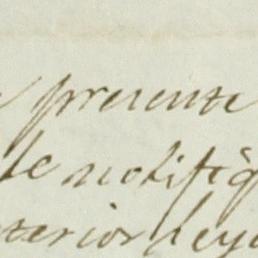 presente
de notifiq
terior deya